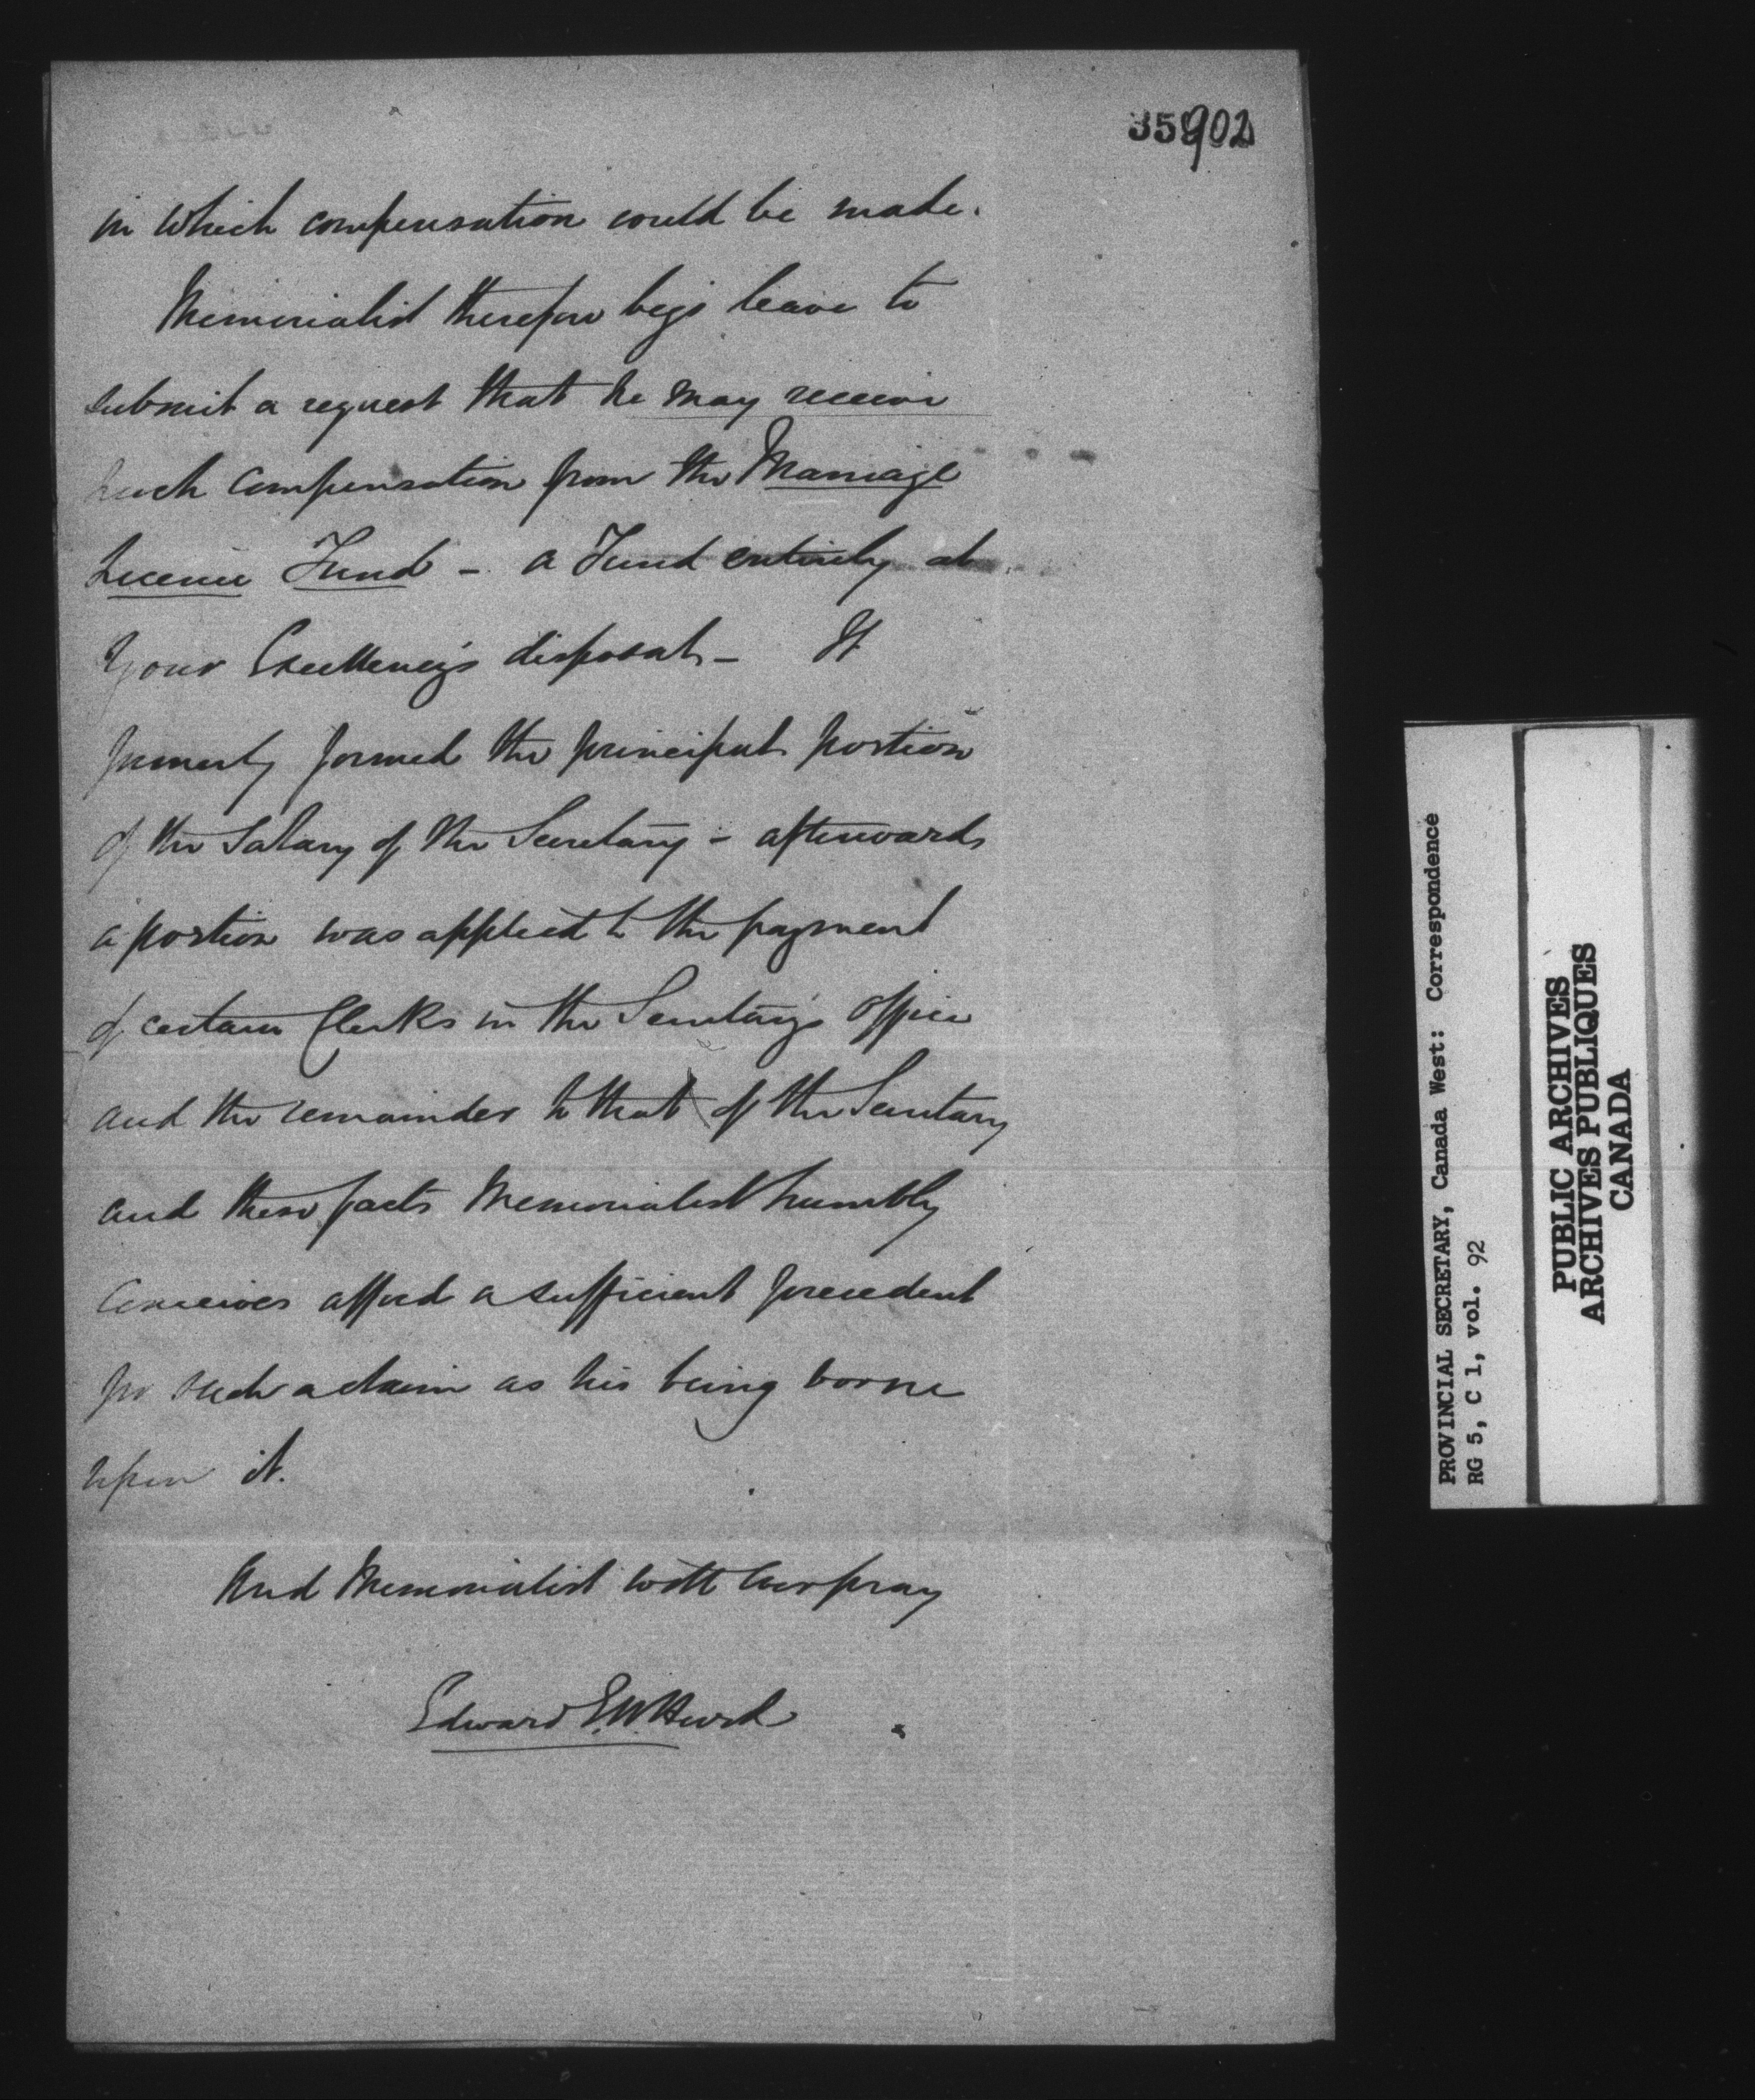 35902
in which compensation could be made.
Memorialist therefore begs leave to
submit a request that he may receive
such compensation from the Marriage
Licence Fund - a Fund entirely at
Your Excellency's disposal - It
formerly formed the principal portion
of the Salary of the Secretary - afterwards
a portion was applied to the payment
of certain Clerks in the Secretary's office
and the remainder to that of the Secretary
and these facts Memorialist humbly
conceives afford a sufficient precedent
for such a claim as his being borne
upon it.
And Memorialist will ever pray
Edward E. W. Hurd
PROVINCIAL SECRETARY, Canada West: Correspondence
RG 5, C 1, vol. 92
PUBLIC ARCHIVES
ARCHIVES PUBLIQUES
CANADA